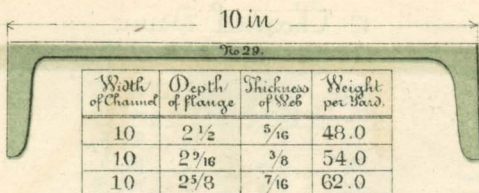 10 in
No 29.
Width of Channel Depth of flange Thickness of Web Weight per Yard.
10 2 1/2 5/16 48.0
10 2 9/16 3/8 54.0
10 2 5/8 7/16 62.0